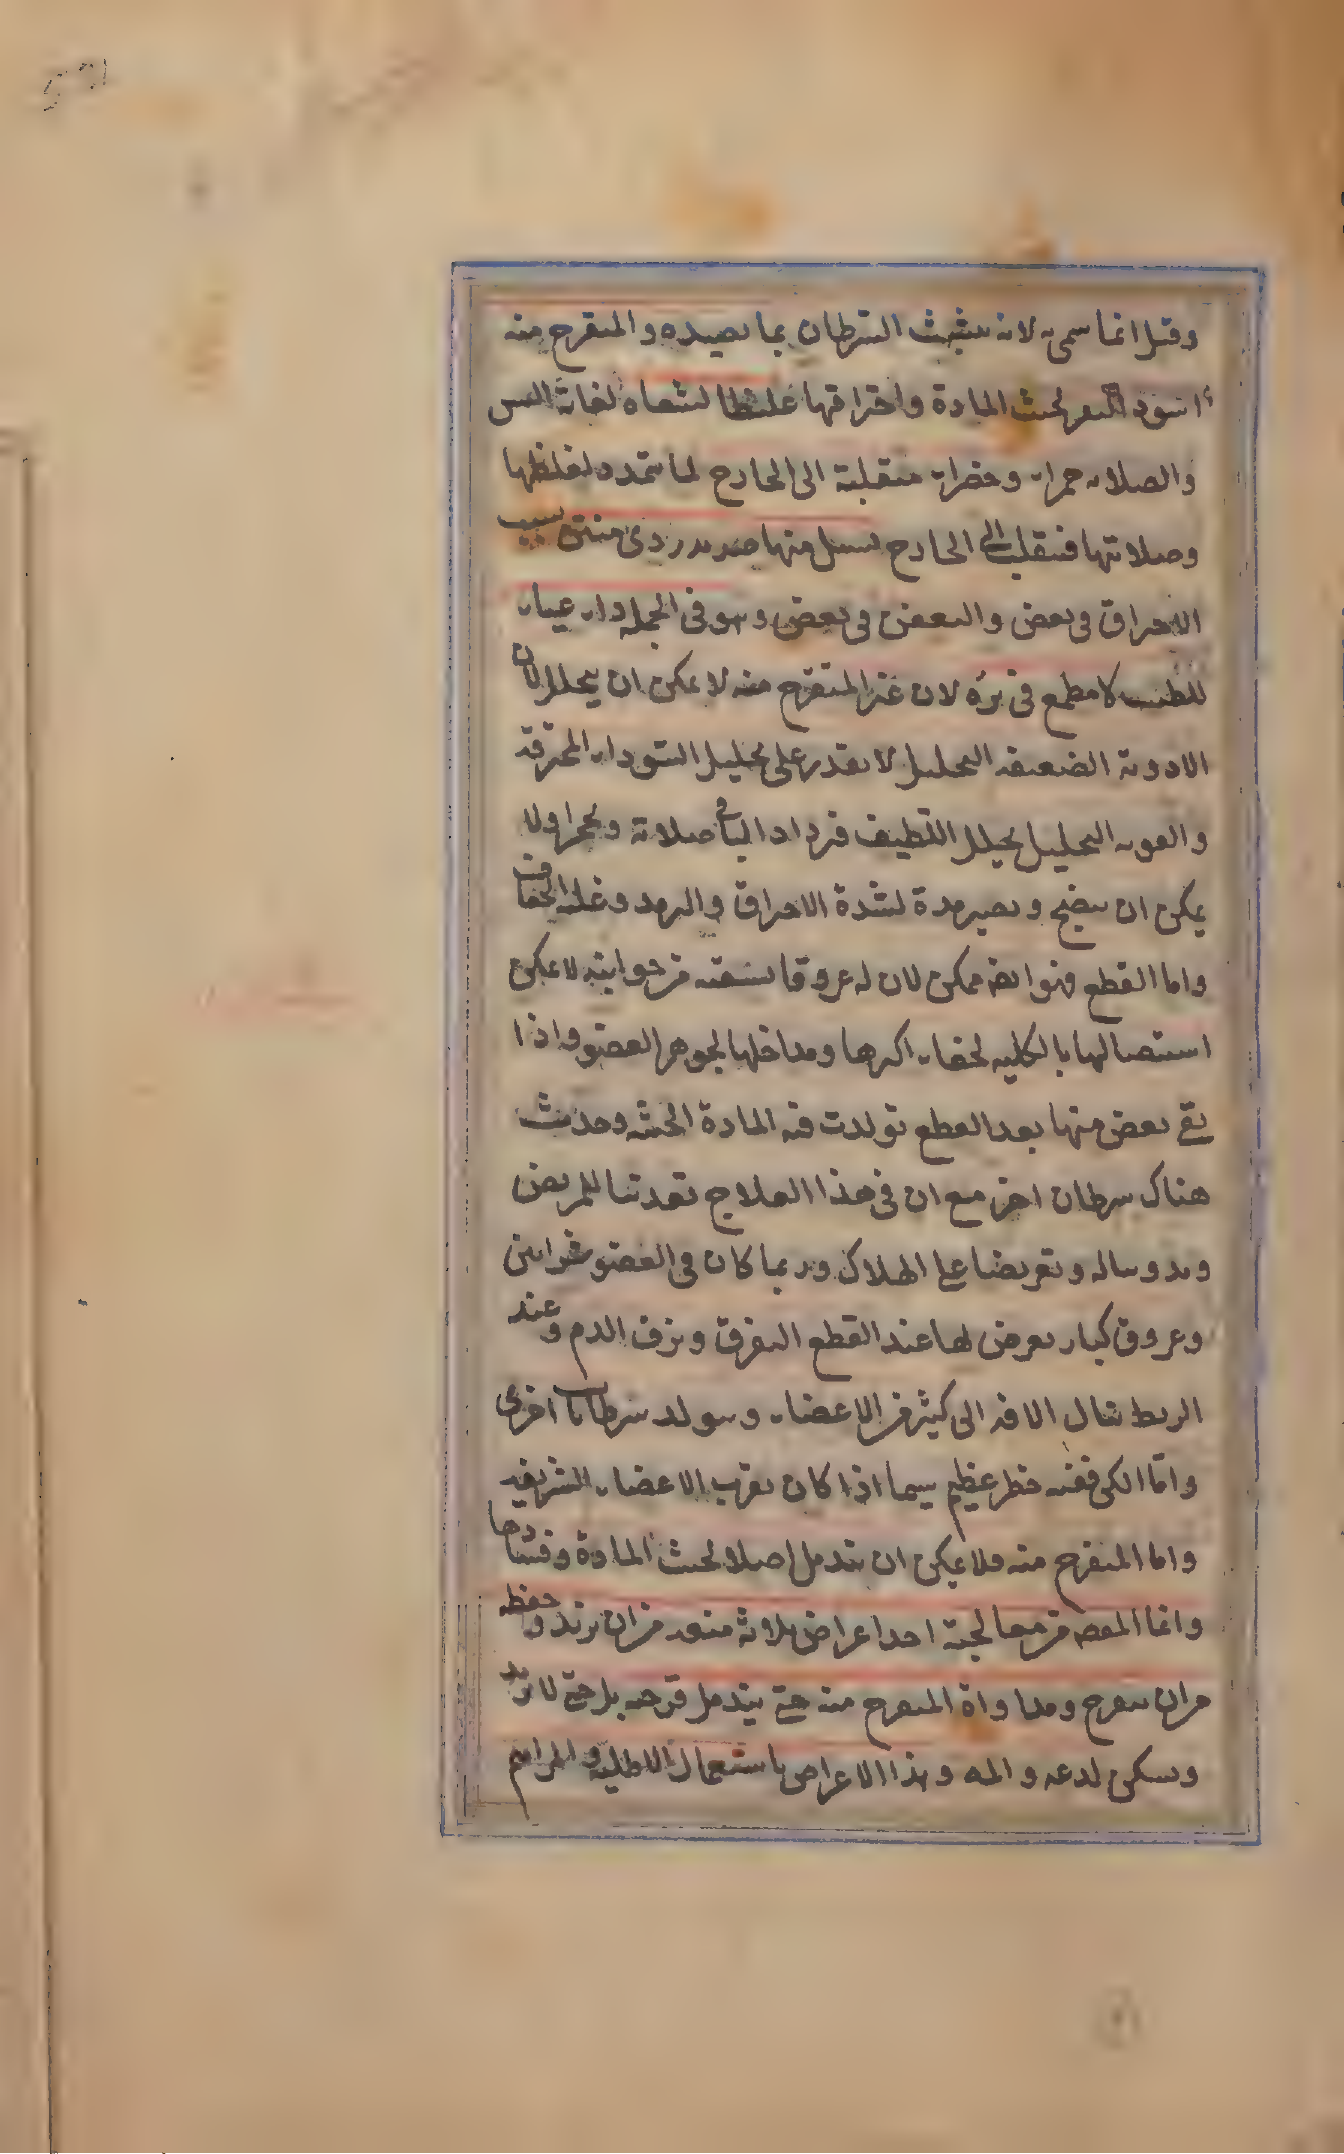 وقيل انما سمى به لانه يتشبث التشرطان بما يصيده والمتقرح منه
اسود اللون لخبث المادة واحتراقها غليظا لشفاه لغاية اليبس
والصلابة حمراء وخضراء منقلبة الى الخارج لما تتمدد لغلظها
وصلابتها فتنقلب الى الخارج يسيل منها صديد ردئ منتن بسبب
الاحراق فى بعض والتعفن فى بعض وهو فى الجملة داء عياء
للطبيب لا مطمع فى برئه لان غير المتقرح منه لا يمكن ان يتحلل لان
الادوية الضعيفة التحليل لا تقدر على تحليل السوداء المحترقة
والقوية التحليل يحلل اللطيف فيزداد الباقى صلابة وتحجرا ولا
يمكن ان ينضج ويصير مدة لشدة الاحراق والبرد وغلبة الجفاف
واما القطع فهو ايضا غير ممكن لان له عروقا متشعبة من جوانبه لا يمكن
استئصالها بالكلية لخفاء اكثرها ومداخلها بجوهر العضو واذا
بقى بعض منها بعد القطع تولدت فيه المادة الخبيثة وحدث
هناك سرطان اخر مع ان فى هذا العلاج تعذيبا للمريض
وتعريضا على الهلاك وربما كان فى العضو شرايين
وعروق كبار يعرض لها عند القطع التفرق ونزف الدم وعند
الربط تنال الافة الى كثير من الاعضاء ويتولد سرطانات اخرى
واما الكى ففيه خطر عظيم سيما اذا كان بقرب الاعضاء الشريفة
واما المتقرح منه فلا يمكن ان يندمل اصلا لخبث المادة وفسادها
وانما المقصود من معالجته احد اعراض ثلاثة منعه من ان يزيد وحفظه
من ان يتقرح ومداواة المتقرح منه حتى يندمل قرحه بل حتى لا يزيد
ويسكن لذعه والمه وهذا الاعراض باستعمال الاطلية والمراهم